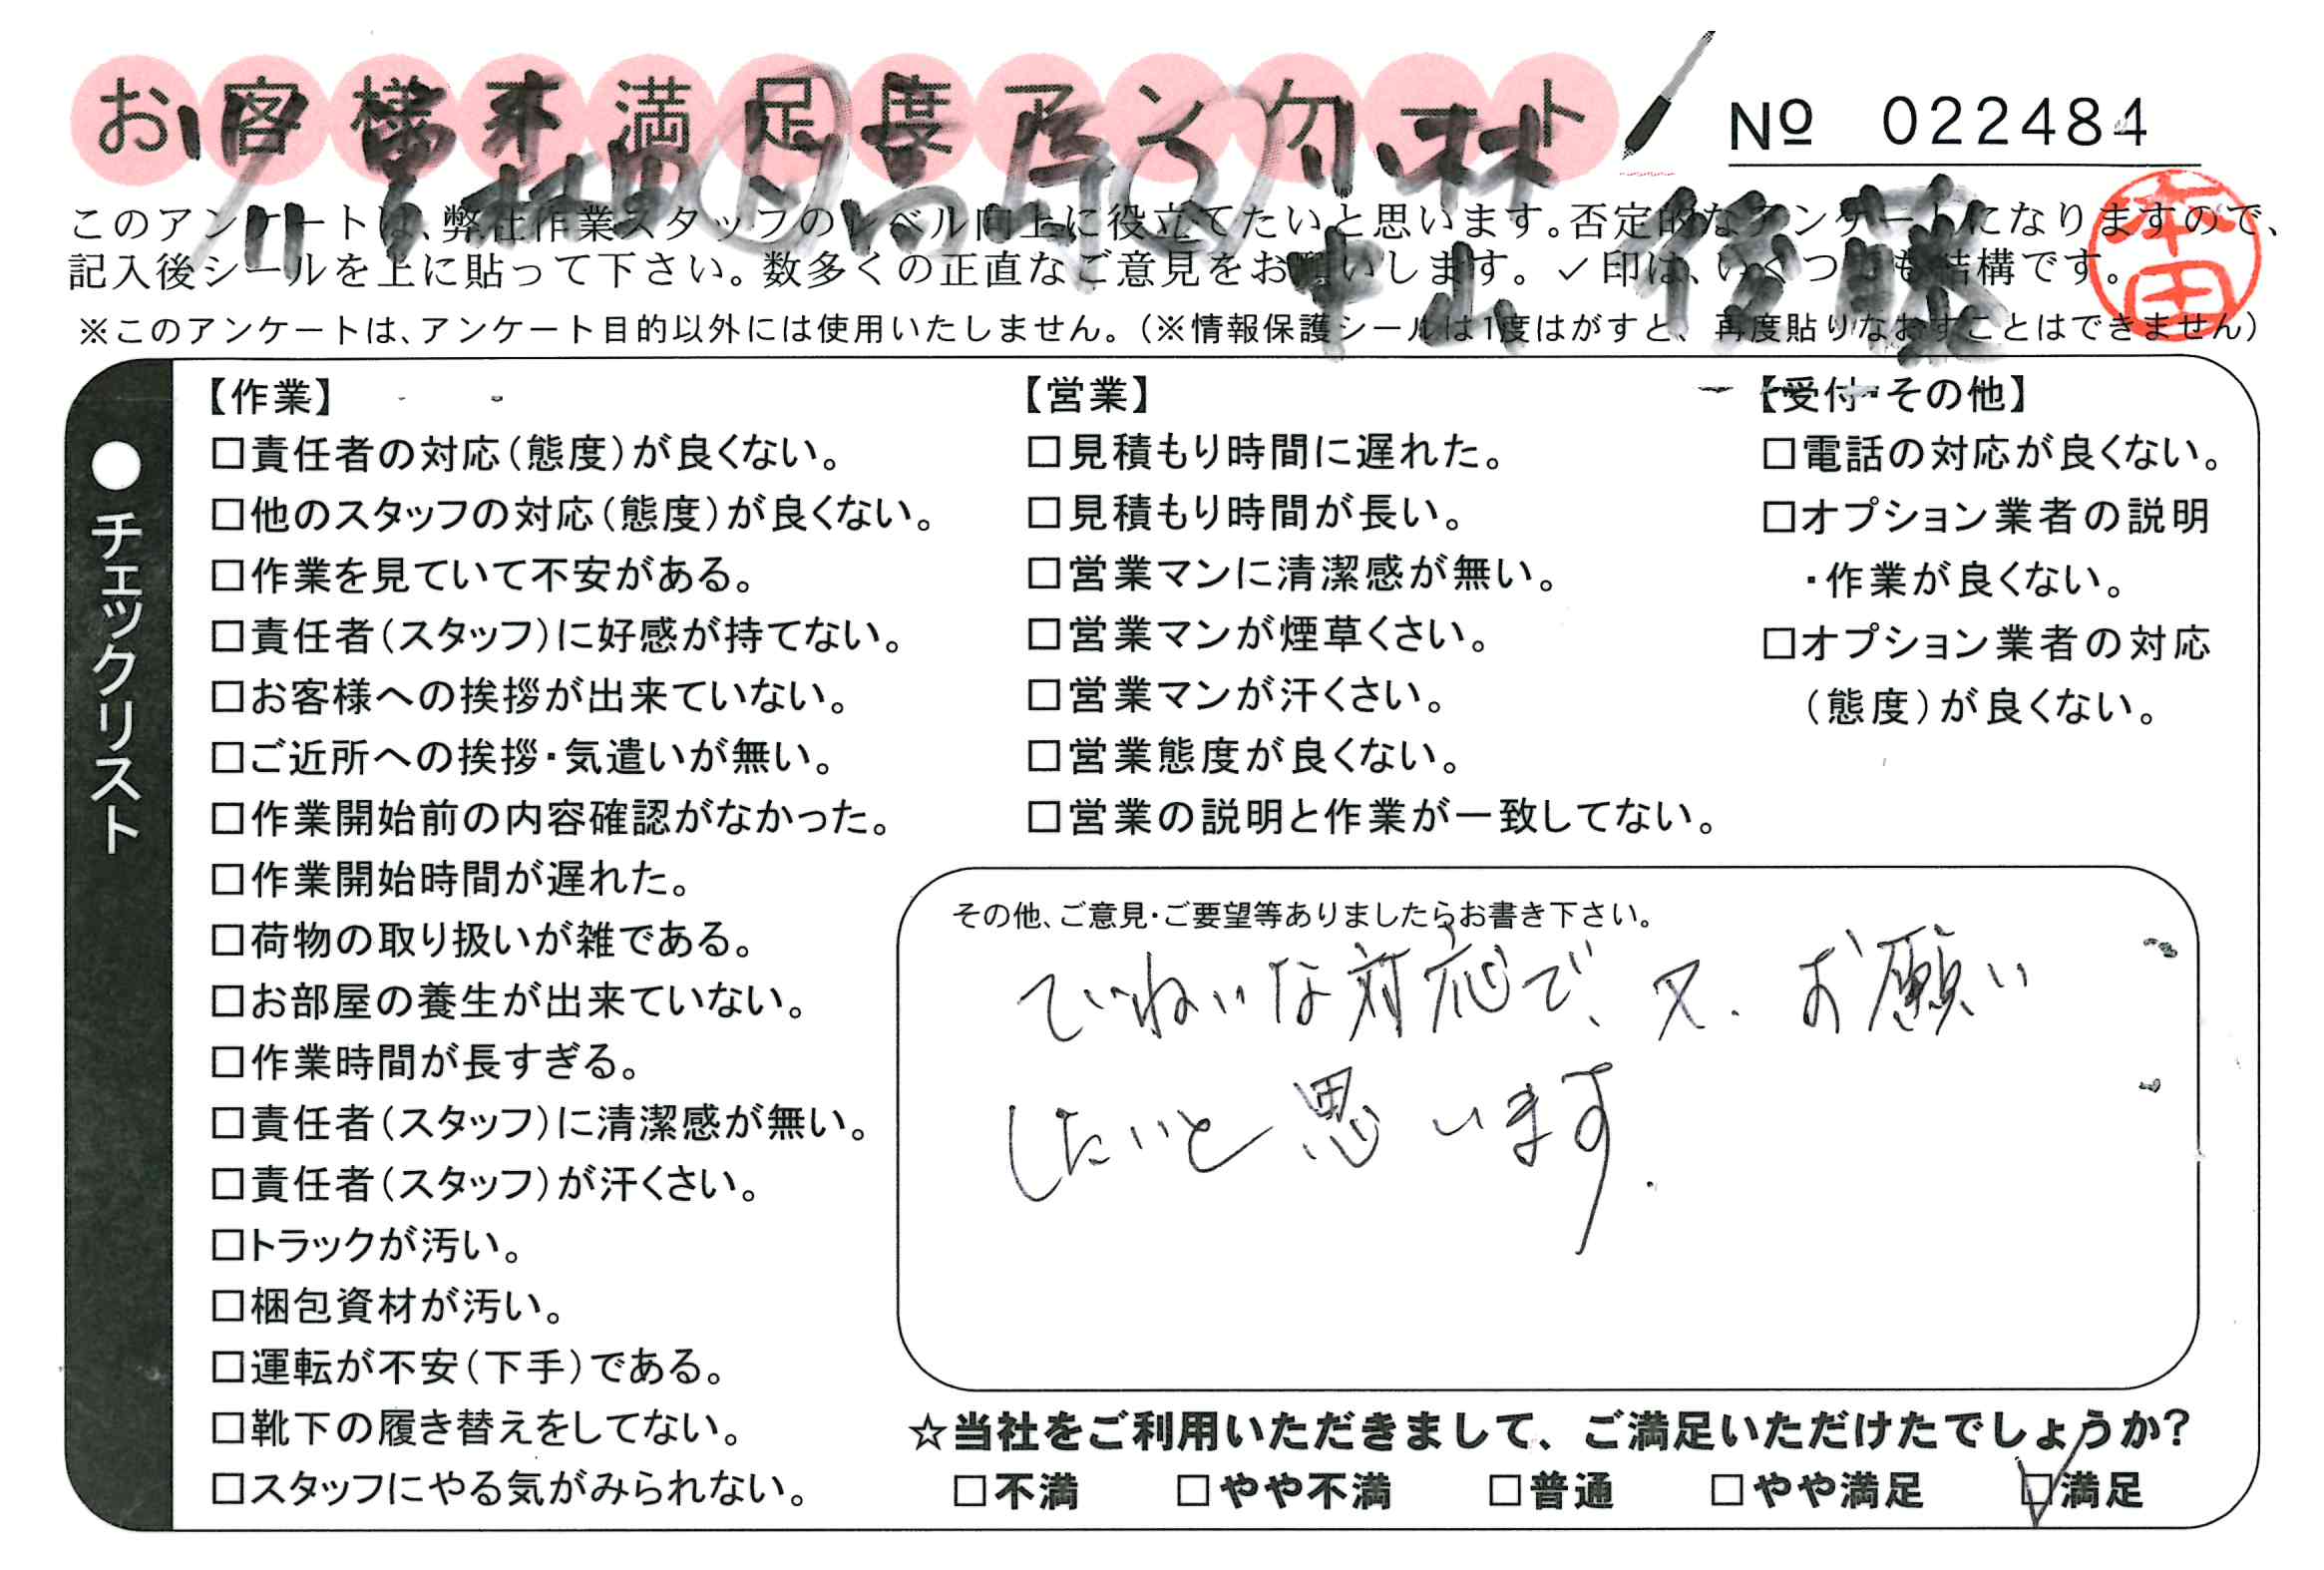 お客様不満足度アンケート
№ 022484
このアンケートは、弊社作業スタッフのレベル向上に役立てたいと思います。否定的なアンケートになりますので、
記入後シールを上に貼って下さい。数多くの正直なご意見をお願いします。✓印は、いくつでも結構です。
※このアンケートは、アンケート目的以外には使用いたしません。(※情報保護シールは1度はがすと、再度貼りなおすことはできません)
小林
中山 後藤
本田
●チェックリスト
【作業】
□責任者の対応(態度)が良くない。
□他のスタッフの対応(態度)が良くない。
□作業を見ていて不安がある。
□責任者(スタッフ)に好感が持てない。
□お客様への挨拶が出来ていない。
□ご近所への挨拶・気遣いが無い。
□作業開始前の内容確認がなかった。
□作業開始時間が遅れた。
□荷物の取り扱いが雑である。
□お部屋の養生が出来ていない。
□作業時間が長すぎる。
□責任者(スタッフ)に清潔感が無い。
□責任者(スタッフ)が汗くさい。
□トラックが汚い。
□梱包資材が汚い。
□運転が不安(下手)である。
□靴下の履き替えをしてない。
□スタッフにやる気がみられない。
【営業】
□見積もり時間に遅れた。
□見積もり時間が長い。
□営業マンに清潔感が無い。
□営業マンが煙草くさい。
□営業マンが汗くさい。
□営業態度が良くない。
□営業の説明と作業が一致してない。
【受付・その他】
□電話の対応が良くない。
□オプション業者の説明
・作業が良くない。
□オプション業者の対応
(態度)が良くない。
その他、ご意見・ご要望等ありましたらお書き下さい。
ていねいな対応で、又、お願い
したいと思います.
☆当社をご利用いただきまして、ご満足いただけたでしょうか?
□不満 □やや不満 □普通 □やや満足 ☑満足